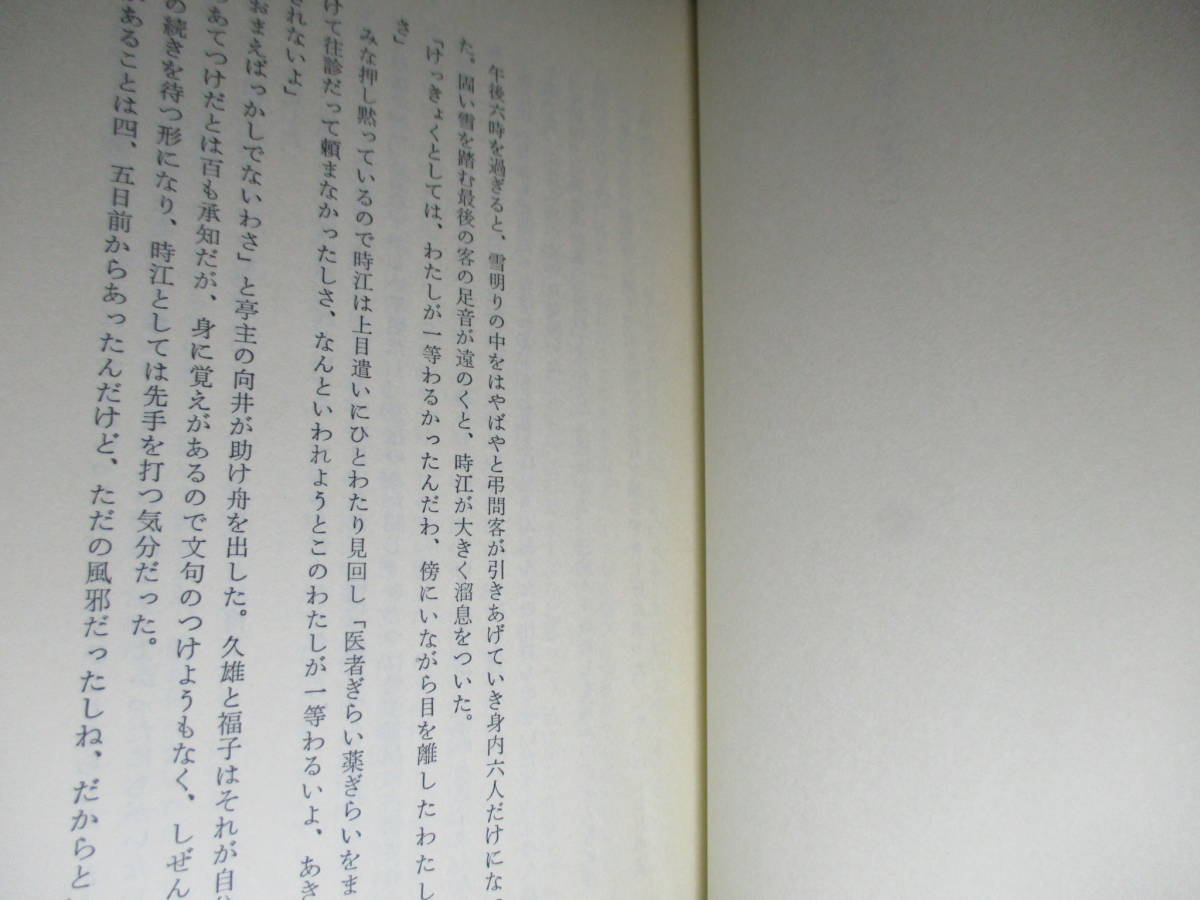 午後六時を過ぎると、雪明りの中をはやばやと弔問客が引きあげていき身内六人だけになっ
た。固い雪を踏む最後の客の足音が遠のくと、時江が大きく溜息をついた。
「けっきょくとしては、わたしが一等わるかったんだわ、傍にいながら目を離したわたし
さ」
みな押し黙っているので時江は上目遣いにひとわたり見回し「医者ぎらい薬ぎらいをま
けて往診だって頼まなかったしさ、なんといわれようとこのわたしが一等わるいよ、あき
されないよ」
おまえばっかしでないわさ」と亭主の向井が助け舟を出した。久雄と福子はそれが自分
あてつけだとは百も承知だが、身に覚えがあるので文句のつけようもなく、しぜん
の続きを待つ形になり、時江としては先手を打つ気分だった。
あることは四、五日前からあったんだけど、ただの風邪だったしね、だからと